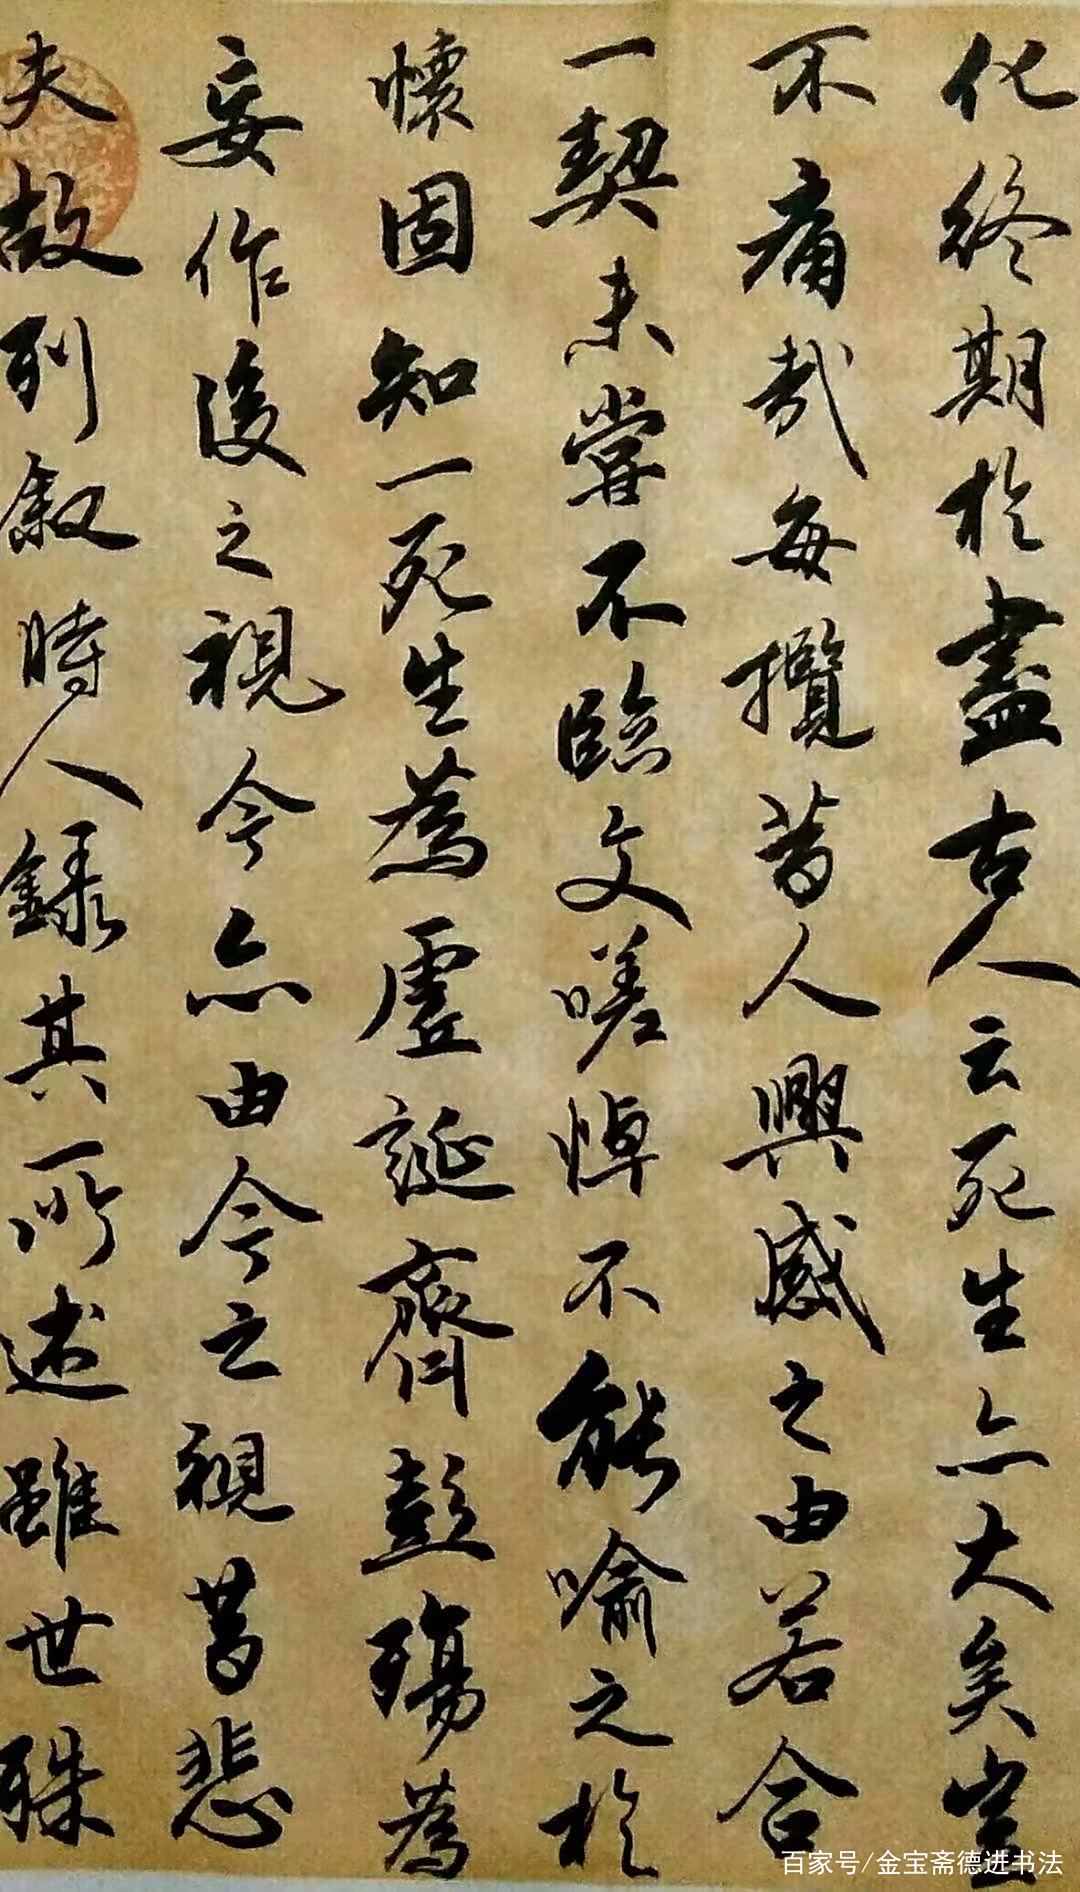 化終期於盡古人云死生亦大矣豈
不痛哉每攬昔人興感之由若合
一契未嘗不臨文嗟悼不能喻之於
懷固知一死生為虛誕齊彭殤為
妄作後之視今亦由今之視昔悲
夫故列叙時人錄其所述雖世殊
百家号/金宝斋德进书法